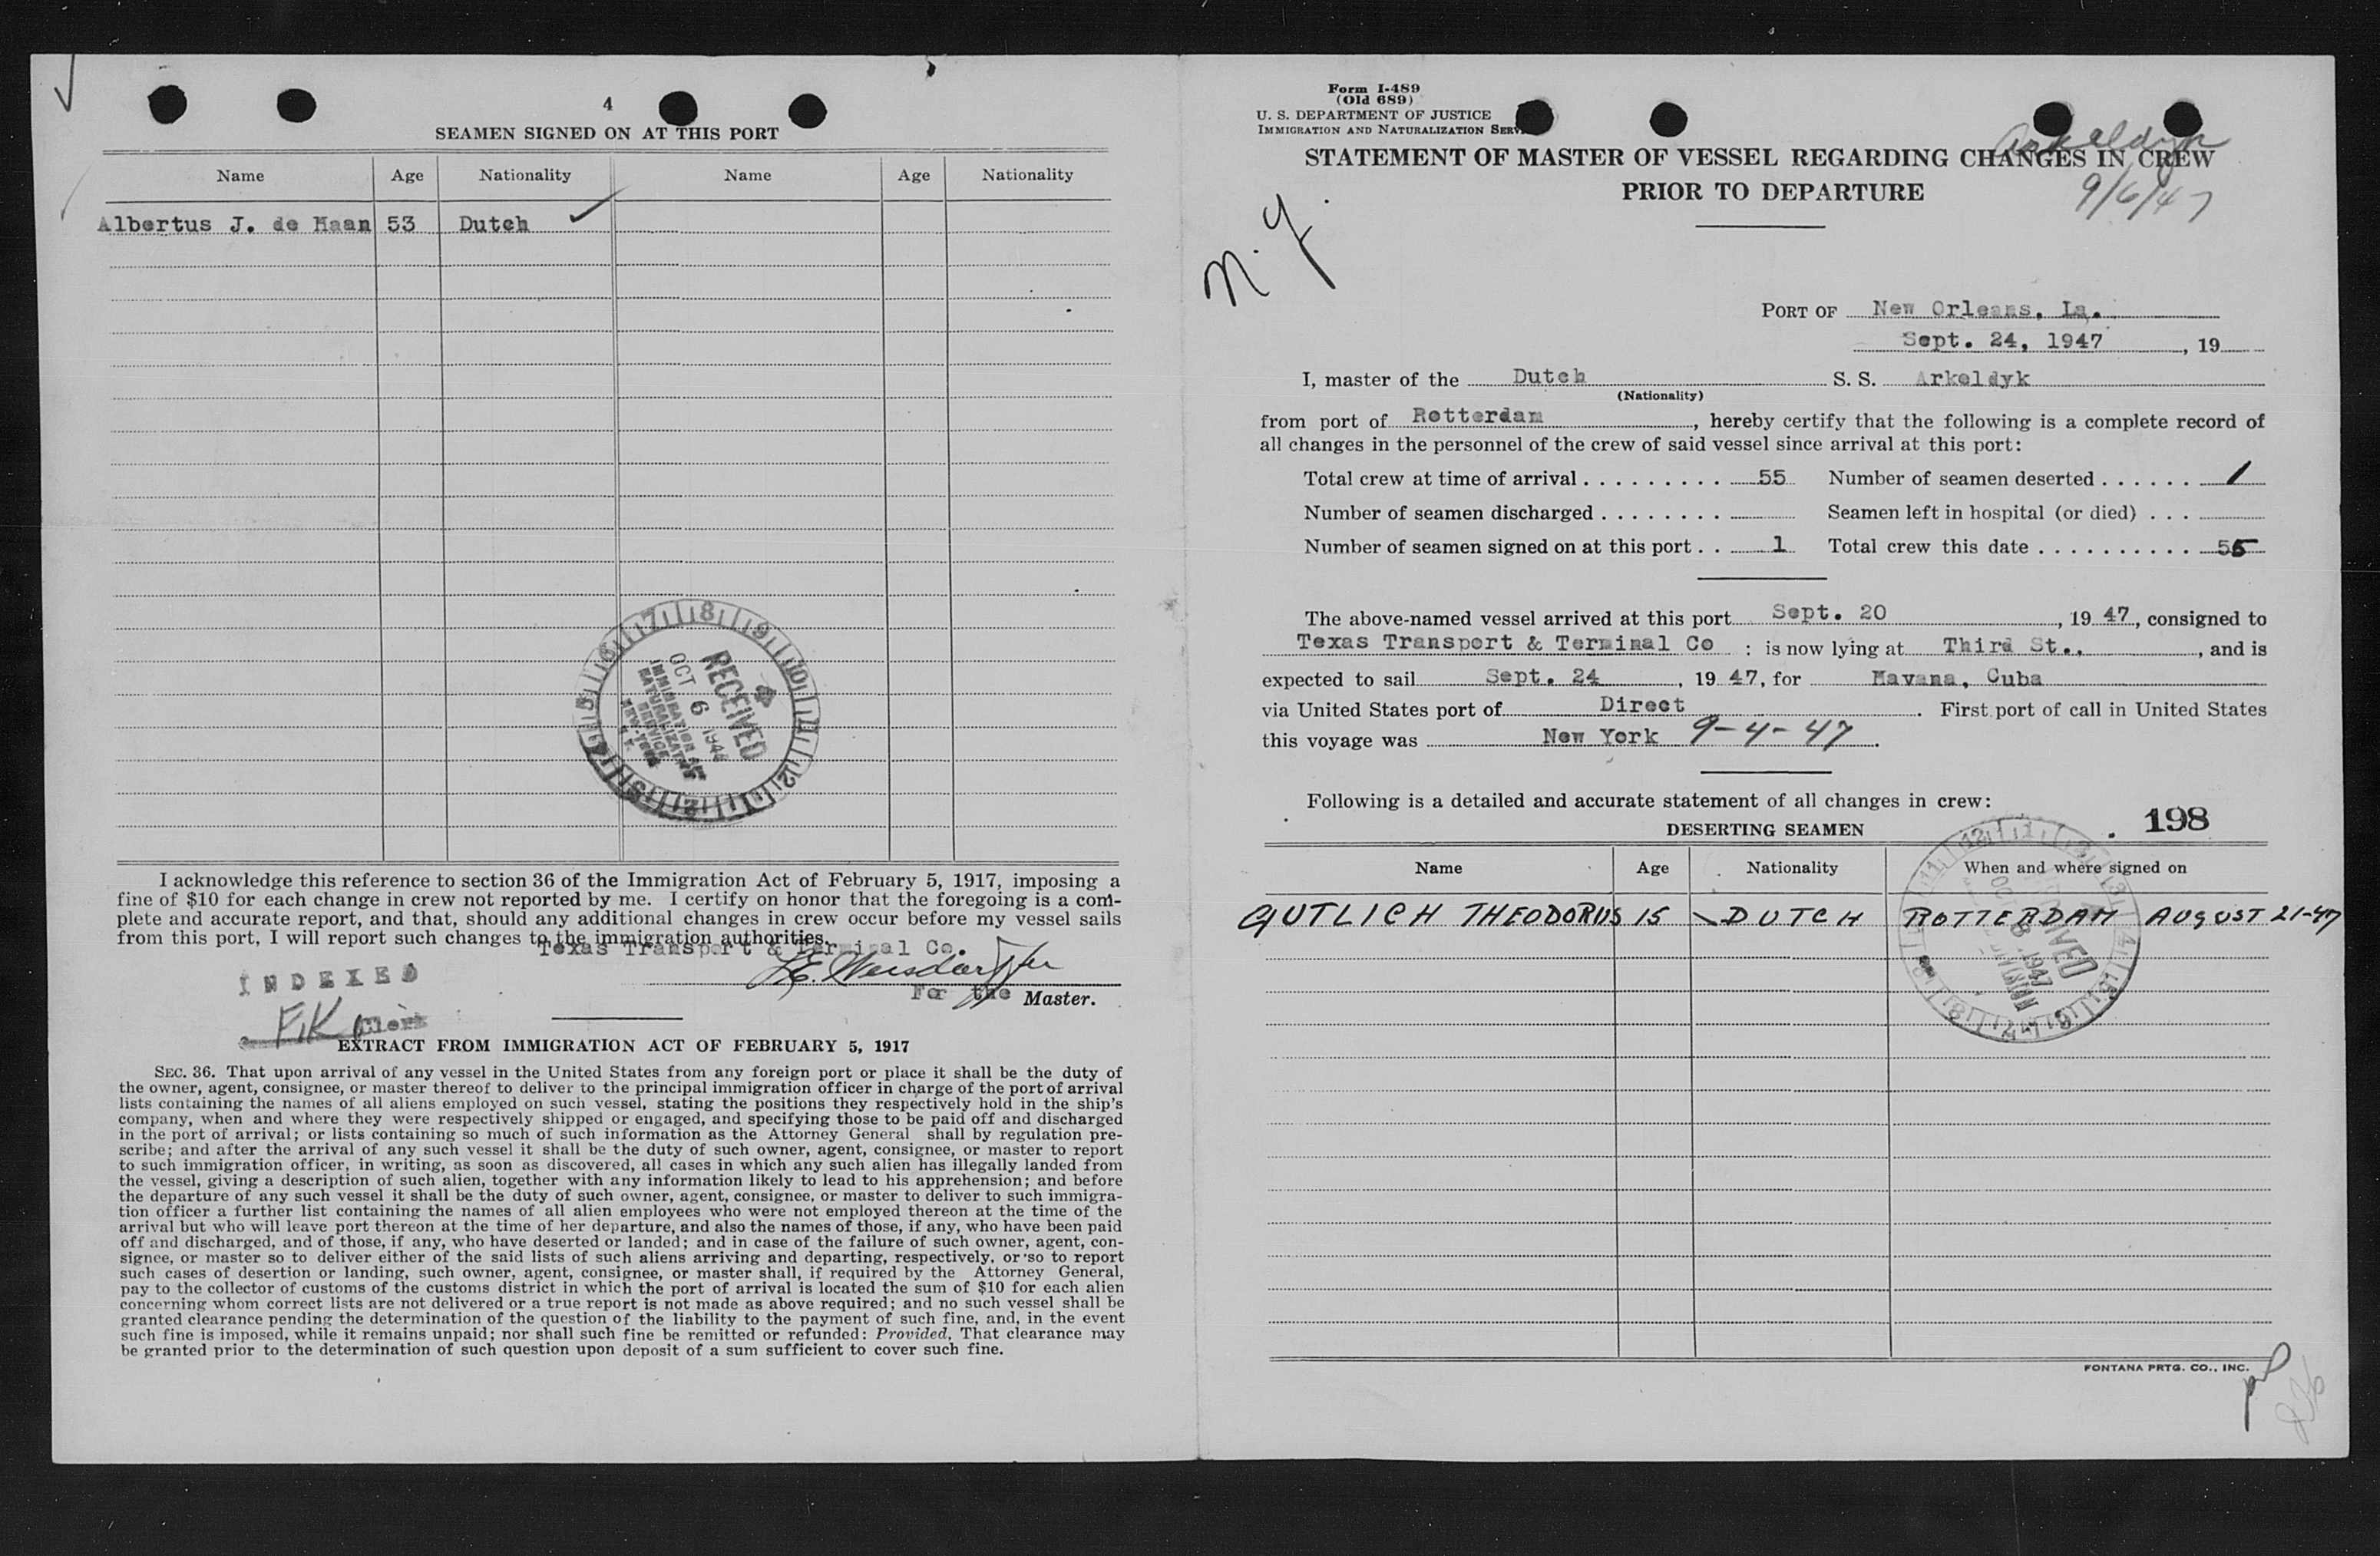 4
SEAMEN SIGNED ON AT THIS PORT
Name Age Nationality Name Age Nationality
Albertus J. de Haan 53 Dutch
RECEIVED
OCT 6
IMMIGRATION
NATURALIZATION
SERVICE
NEW YORK
I acknowledge this reference to section 36 of the Immigration Act of February 5, 1917, imposing a
fine of $10 for each change in crew not reported by me. I certify on honor that the foregoing is a com-
plete and accurate report, and that, should any additional changes in crew occur before my vessel sails
from this port, I will report such changes to the immigration authorities.
Texas Transport & Terminal Co.
For the Master.
INDEXED
FIK Clerk
EXTRACT FROM IMMIGRATION ACT OF FEBRUARY 5, 1917
SEC. 36. That upon arrival of any vessel in the United States from any foreign port or place it shall be the duty of
the owner, agent, consignee, or master thereof to deliver to the principal immigration officer in charge of the port of arrival
lists containing the names of all aliens employed on such vessel, stating the positions they respectively hold in the ship's
company, when and where they were respectively shipped or engaged, and specifying those to be paid off and discharged
in the port of arrival; or lists containing so much of such information as the Attorney General shall by regulation pre-
scribe; and after the arrival of any such vessel it shall be the duty of such owner, agent, consignee, or master to report
to such immigration officer, in writing, as soon as discovered, all cases in which any such alien has illegally landed from
the vessel, giving a description of such alien, together with any information likely to lead to his apprehension; and before
the departure of any such vessel it shall be the duty of such owner, agent, consignee, or master to deliver to such immigra-
tion officer a further list containing the names of all alien employees who were not employed thereon at the time of the
arrival but who will leave port thereon at the time of her departure, and also the names of those, if any, who have been paid
off and discharged, and of those, if any, who have deserted or landed; and in case of the failure of such owner, agent, con-
signee, or master so to deliver either of the said lists of such aliens arriving and departing, respectively, or so to report
such cases of desertion or landing, such owner, agent, consignee, or master shall, if required by the Attorney General,
pay to the collector of customs of the customs district in which the port of arrival is located the sum of $10 for each alien
concerning whom correct lists are not delivered or a true report is not made as above required; and no such vessel shall be
granted clearance pending the determination of the question of the liability to the payment of such fine, and, in the event
such fine is imposed, while it remains unpaid; nor shall such fine be remitted or refunded: Provided, That clearance may
be granted prior to the determination of such question upon deposit of a sum sufficient to cover such fine.
Form I-489
(Old 689)
U. S. DEPARTMENT OF JUSTICE
IMMIGRATION AND NATURALIZATION
Arkeldyk
STATEMENT OF MASTER OF VESSEL REGARDING CHANGES IN CREW
PRIOR TO DEPARTURE
9/6/47
N.Y.
PORT OF New Orleans, La.
Sept. 24, 1947, 19
I, master of the Dutch S. S. Arkeldyk
(Nationality)
from port of Rotterdam, hereby certify that the following is a complete record of
all changes in the personnel of the crew of said vessel since arrival at this port:
Total crew at time of arrival 55 Number of seamen deserted 1
Number of seamen discharged Seamen left in hospital (or died)
Number of seamen signed on at this port 1 Total crew this date 55
The above-named vessel arrived at this port Sept. 20, 19 47, consigned to
Texas Transport & Terminal Co : is now lying at Third St., and is
expected to sail Sept. 24, 19 47, for Havana, Cuba
via United States port of Direct. First port of call in United States
this voyage was New York 9-4-47.
Following is a detailed and accurate statement of all changes in crew:
198
DESERTING SEAMEN
Name Age Nationality When and where signed on
GUTLICH THEODORUS 15 DUTCH ROTTERDAM AUGUST 21-47
FONTANA PRTG. CO., INC.